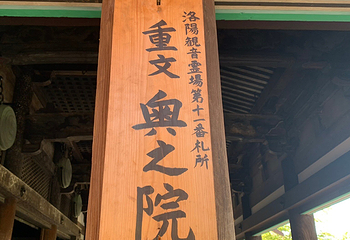 洛陽観音霊場第十一番札所
重文奥之院